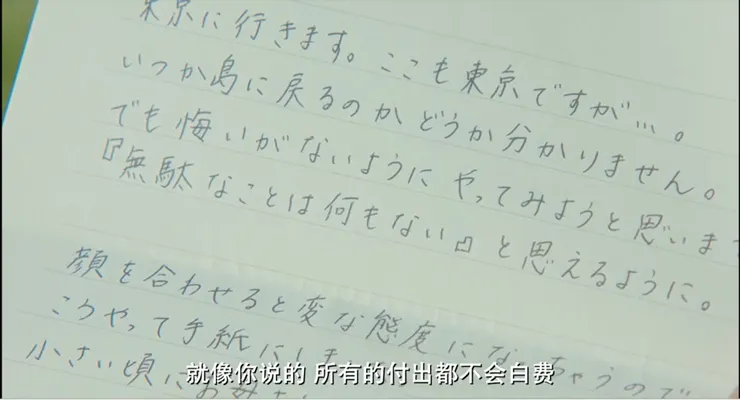 東京に行きます。ここも東京ですが…。
いつか島に戻るのかどうか分かりません。
でも悔いがないようにやってみようと思いま
『無駄なことは何もない』と思えるように。
顔を合わせると変な態度になっちゃうので
こうやって手紙にしま
小さい頃にお
就像你说的 所有的付出都不会白费